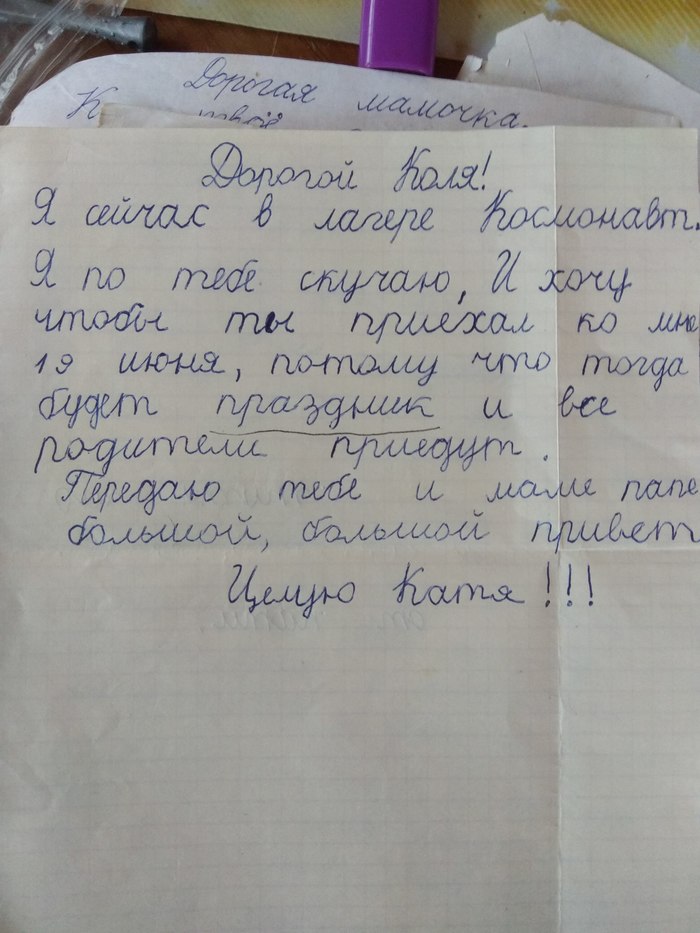 Дорогая мамочка.
К твоё
Дорогой Коля!
Я сейчас в лагере Космонавт.
Я по тебе скучаю, И хочу
чтобы ты приехал ко мне
19 июня, потому что тогда
будет праздник и все
родители приедут.
Передаю тебе и маме папе
большой, большой привет
Целую Катя!!!